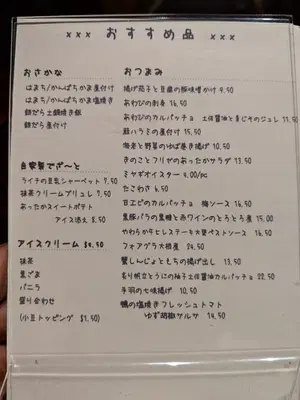 xxx おすすめ品 xxx
おさかな
はまち/かんぱちかま煮付け
はまち/かんぱちかま塩焼き
銀だら土鍋焼き飯
銀だら煮付け
自家製でざ〜と
ライチの豆乳シャーベット 7.50
抹茶クリームブリュレ 7.50
あったかスイートポテト
アイス添え 8.50
アイスクリーム $4.50
抹茶
黒ごま
バニラ
盛り合わせ
(小豆トッピング $1.50)
おつまみ
揚げ茄子と豆腐の豚味噌かけ 9.50
あわびの刺身 16.50
あわびのカルパッチョ 土佐醤油と青じそのジュレ 11.50
鮭ハラミの煮付け 11.50
海老と野菜のゆば巻き揚げ 10.50
きのことフリヤのあったかサラダ 13.50
ミヤギオイスター 4.00/pc
たこわさ 6.50
甘エビのカルパッチョ 梅ソース 16.50
黒豚バラの黒糖と赤ワインのとろとろ煮 15.00
やわらか牛ヒレステーキ大葉ペストソース 16.50
フォアグラ大根 25.50
蟹しんじょともちの揚げ出し 13.50
炙り帆立とうにの柚子土佐醤油カルパッチョ 22.50
手羽の七味揚げ 10.50
鴨の塩焼きフレッシュトマト
ゆず胡椒サルサ 14.50